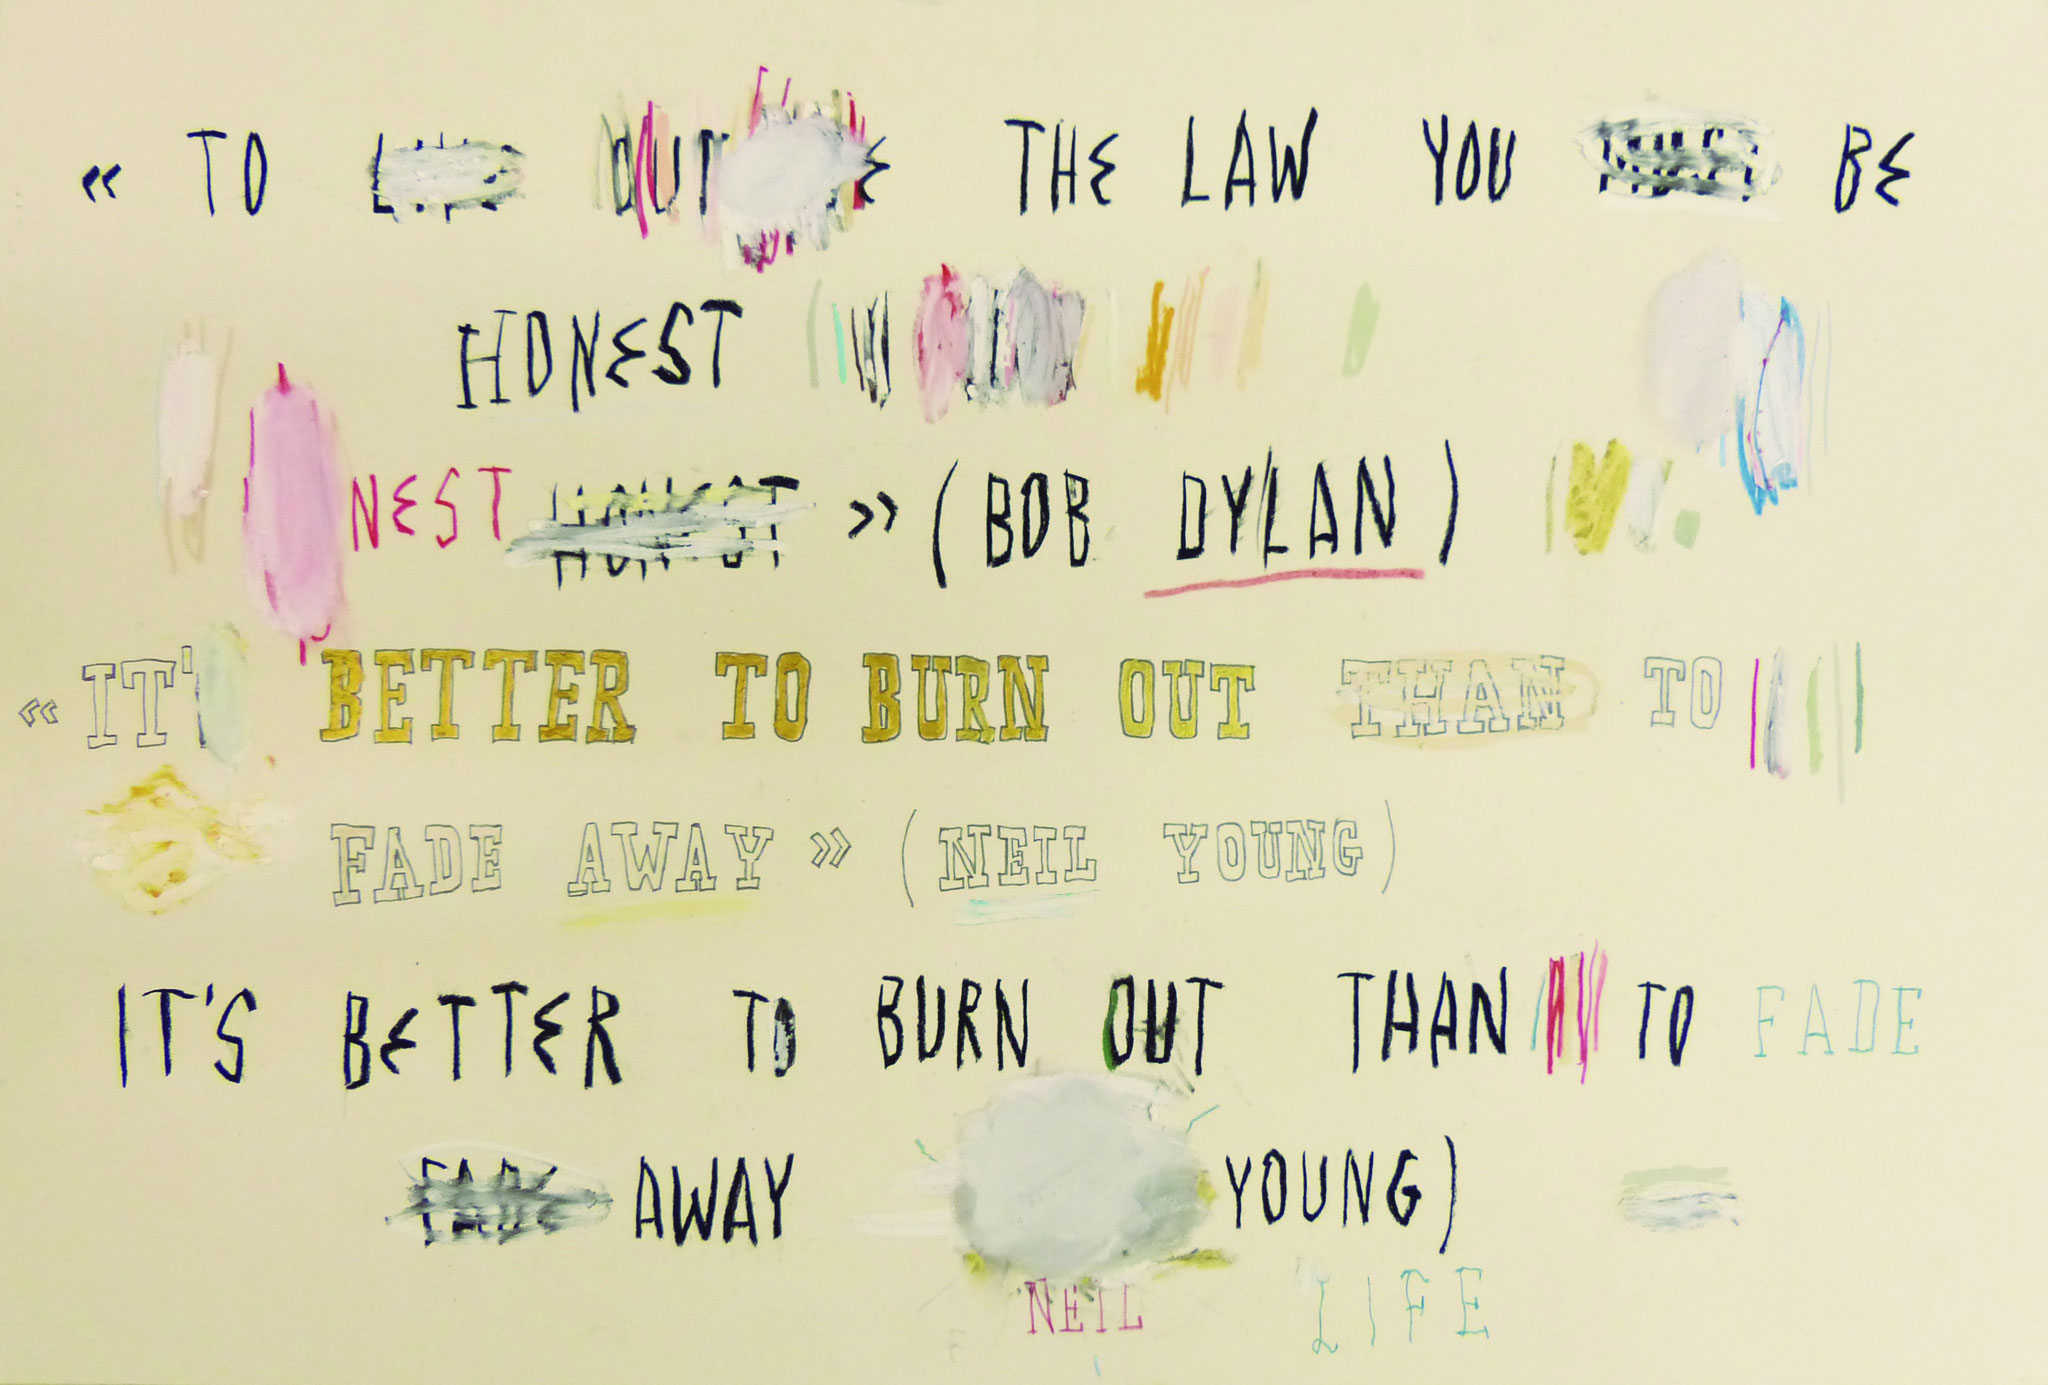 « TO OUT THE LAW YOU BE
HONEST
NEST HONEST » (BOB DYLAN)
« IT' BETTER TO BURN OUT THAN TO
FADE AWAY » (NEIL YOUNG)
IT'S BETTER TO BURN OUT THAN TO FADE
FADE AWAY YOUNG)
NEIL LIFE